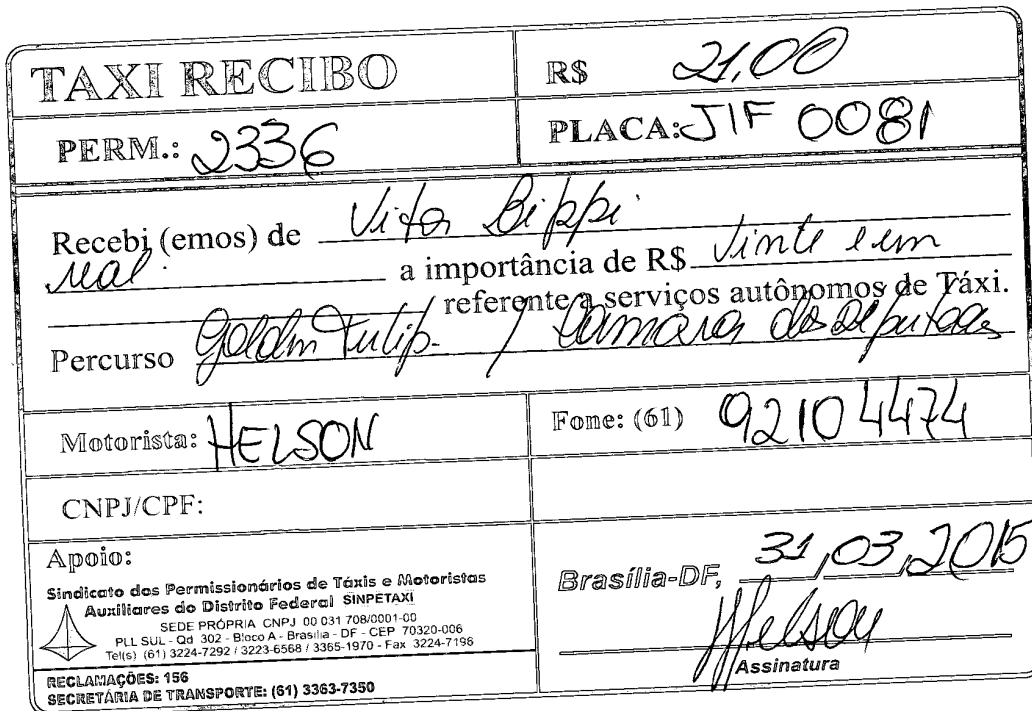 TAXI RECIBO
R$ 21,00
PERM.: 2336
PLACA: JIF 0081
Recebi (emos) de Vitor Bippi
real a importância de R$ vinte e um
referente a serviços autônomos de Táxi.
Percurso Golden Tulip / Camara dos Deputados
Motorista: HELSON
Fone: (61) 92104474
CNPJ/CPF:
Apoio:
Sindicato dos Permissionários de Táxis e Motoristas
Auxiliares do Distrito Federal SINPETAXI
SEDE PRÓPRIA CNPJ 00 031 708/0001-00
PLL SUL - Qd 302 - Bloco A - Brasília - DF - CEP 70320-006
Tel(s) (61) 3224-7292 / 3223-6568 / 3365-1970 - Fax 3224-7196
RECLAMAÇÕES: 156
SECRETÁRIA DE TRANSPORTE: (61) 3363-7350
Brasília-DF, 31,03,2015
Helson
Assinatura